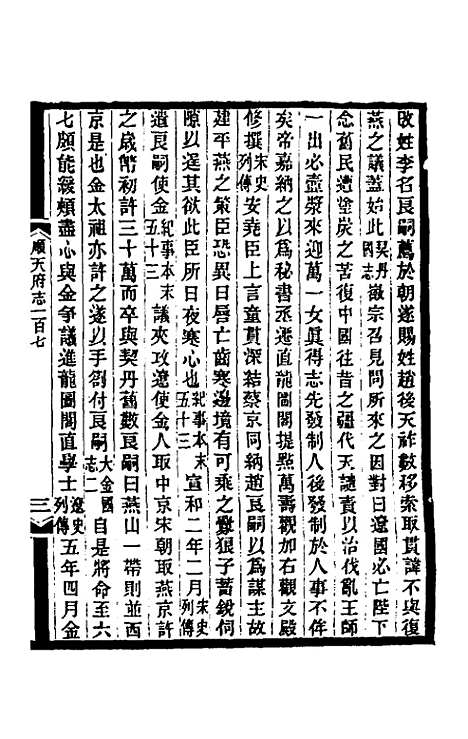 改姓李名良嗣薦於朝遂賜姓趙後天祚數移索取貫諱不與復
燕之議蓋始此契丹國志徽宗召見問所來之因對曰遼國必亡陛下
念舊民遭塗炭之苦復中國往昔之疆代天譴責以治伐亂王師
一出必壼漿來迎萬一女眞得志先發制人後發制於人事不侔
矣帝嘉納之以爲秘書丞遷直龍圖閣提點萬壽觀加右觀文殿
修撰宋史列傳安堯臣上言童貫深結蔡京同納趙良嗣以爲謀主故
建平燕之策臣恐異日唇亡齒寒邊境有可乘之釁狼子蓄銳伺
隙以逞其欲此臣所日夜寒心也紀事本末五十三宣和二年二月宋史列傳
遣良嗣使金紀事本末五十三議夾攻遼使金人取中京宋朝取燕京許
之歲幣初許三十萬而卒與契丹舊數良嗣曰燕山一帶則並西
京是也金太祖亦許之遂以手劄付良嗣大金國志二自是將命至六
七頗能緩頰盡心與金爭議進龍圖閣直學士遼史列傳五年四月金
順天府志一百七
三